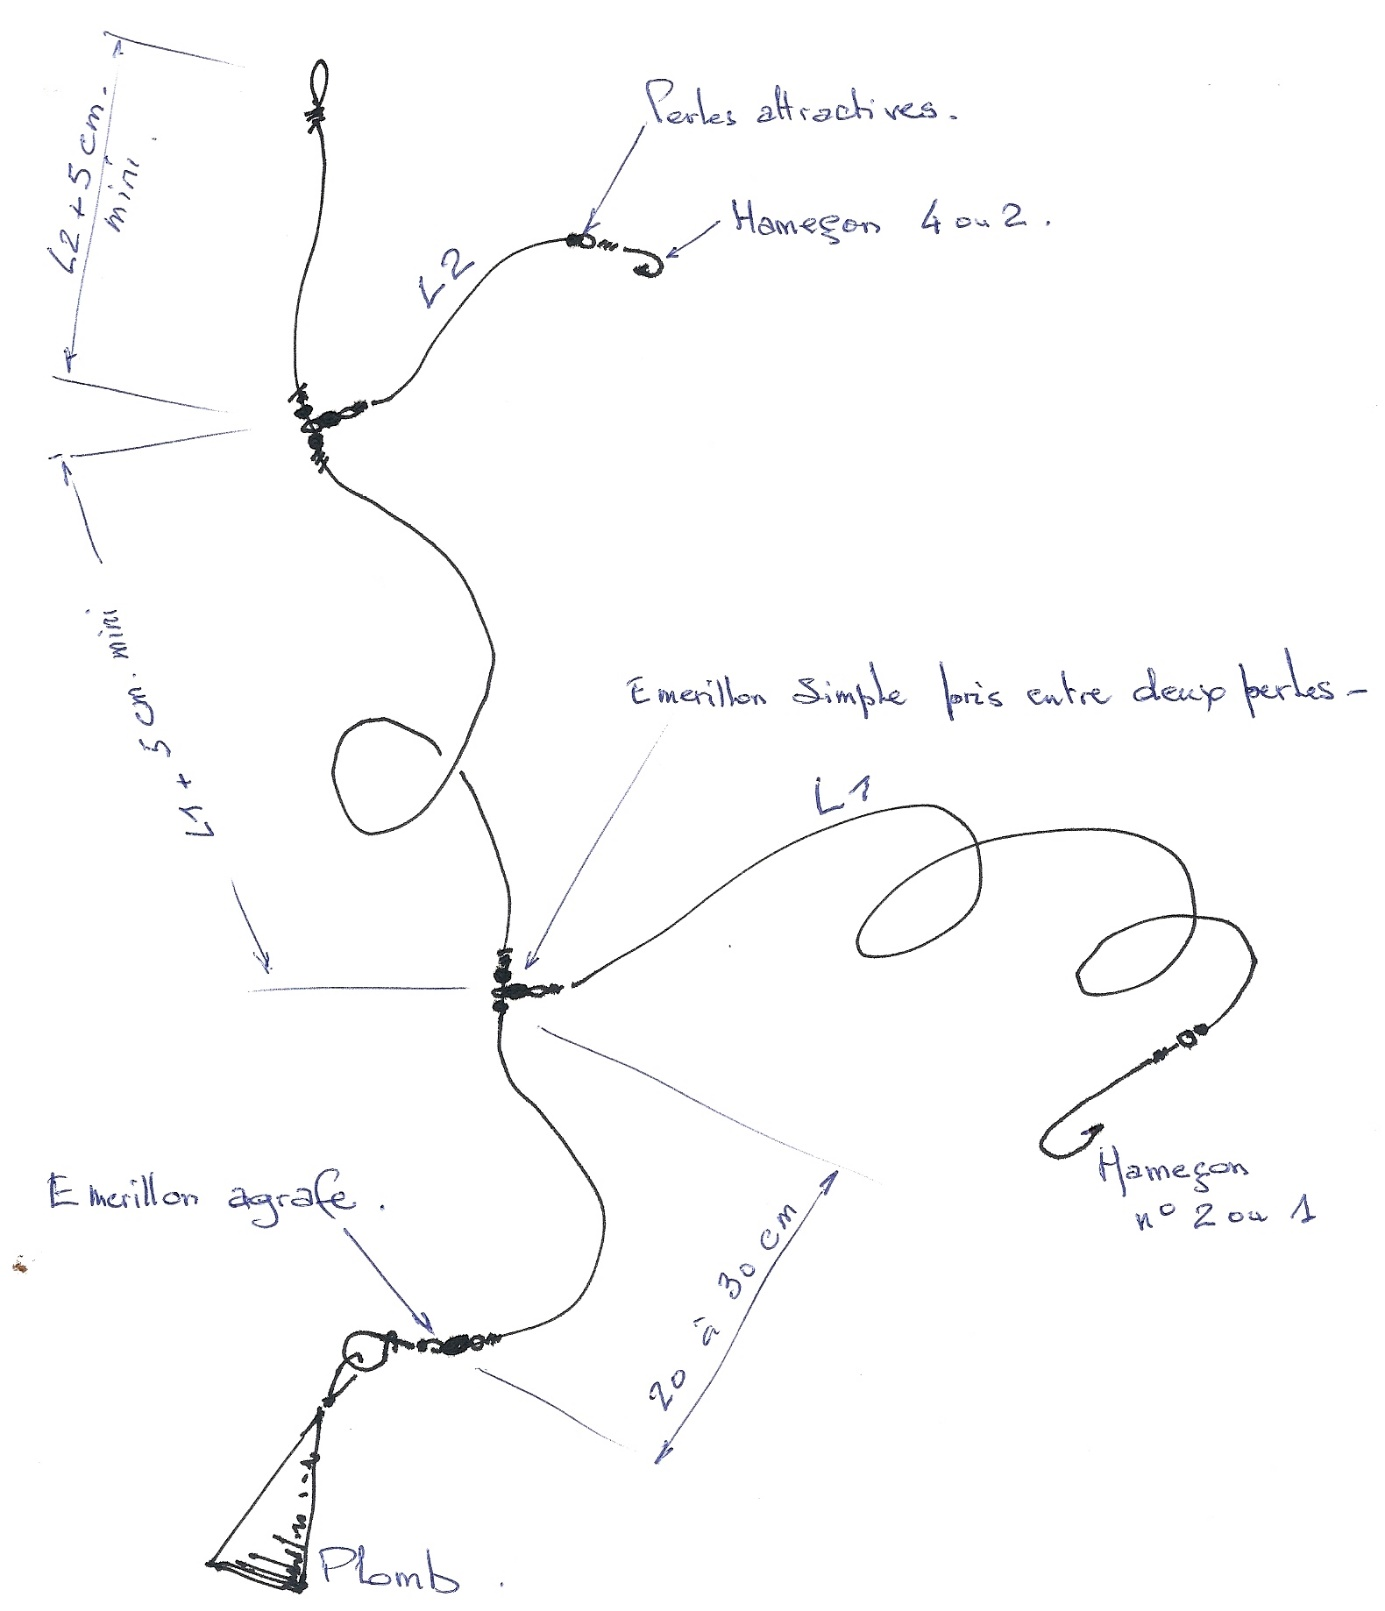 Perles attractives.
L2 + 5 cm.
mini.
Hameçon 4 ou 2.
L2
L1 + 5 cm. mini
Emerillon Simple pris entre deux perles -
L1
Hameçon
n° 2 ou 1
Emerillon agrafe.
20 à 30 cm
Plomb.